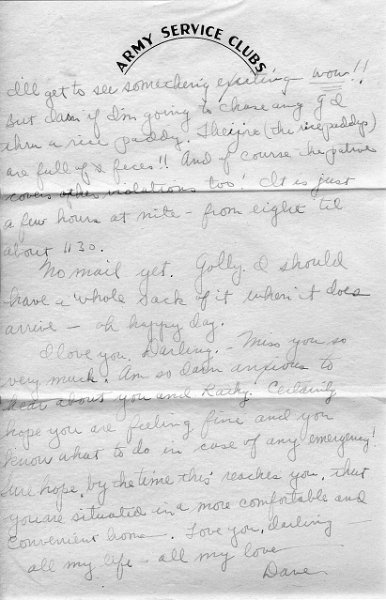 ARMY SERVICE CLUBS
I'll get to see something exciting wow!!
But damn if I'm going to chase any G.I.
thru a rice paddy. They're (the rice paddys)
are full of feces!! And of course the patrol
covers other violations too! It is just
a few hours at nite - from eight til
about 1130.
No mail yet. Golly I should
have a whole sack of it when it does
arrive - oh happy day.
I love you, darling. - Miss you so
very much. Am so damn anxious to
hear about you and. Certainly
hope you are feeling fine and you
know what to do in case of any emergency!
Sure hope, by the time this reaches you, that
you are situated in a more comfortable and
convenient home. Love you, darling -
all my life - all my love
Dave